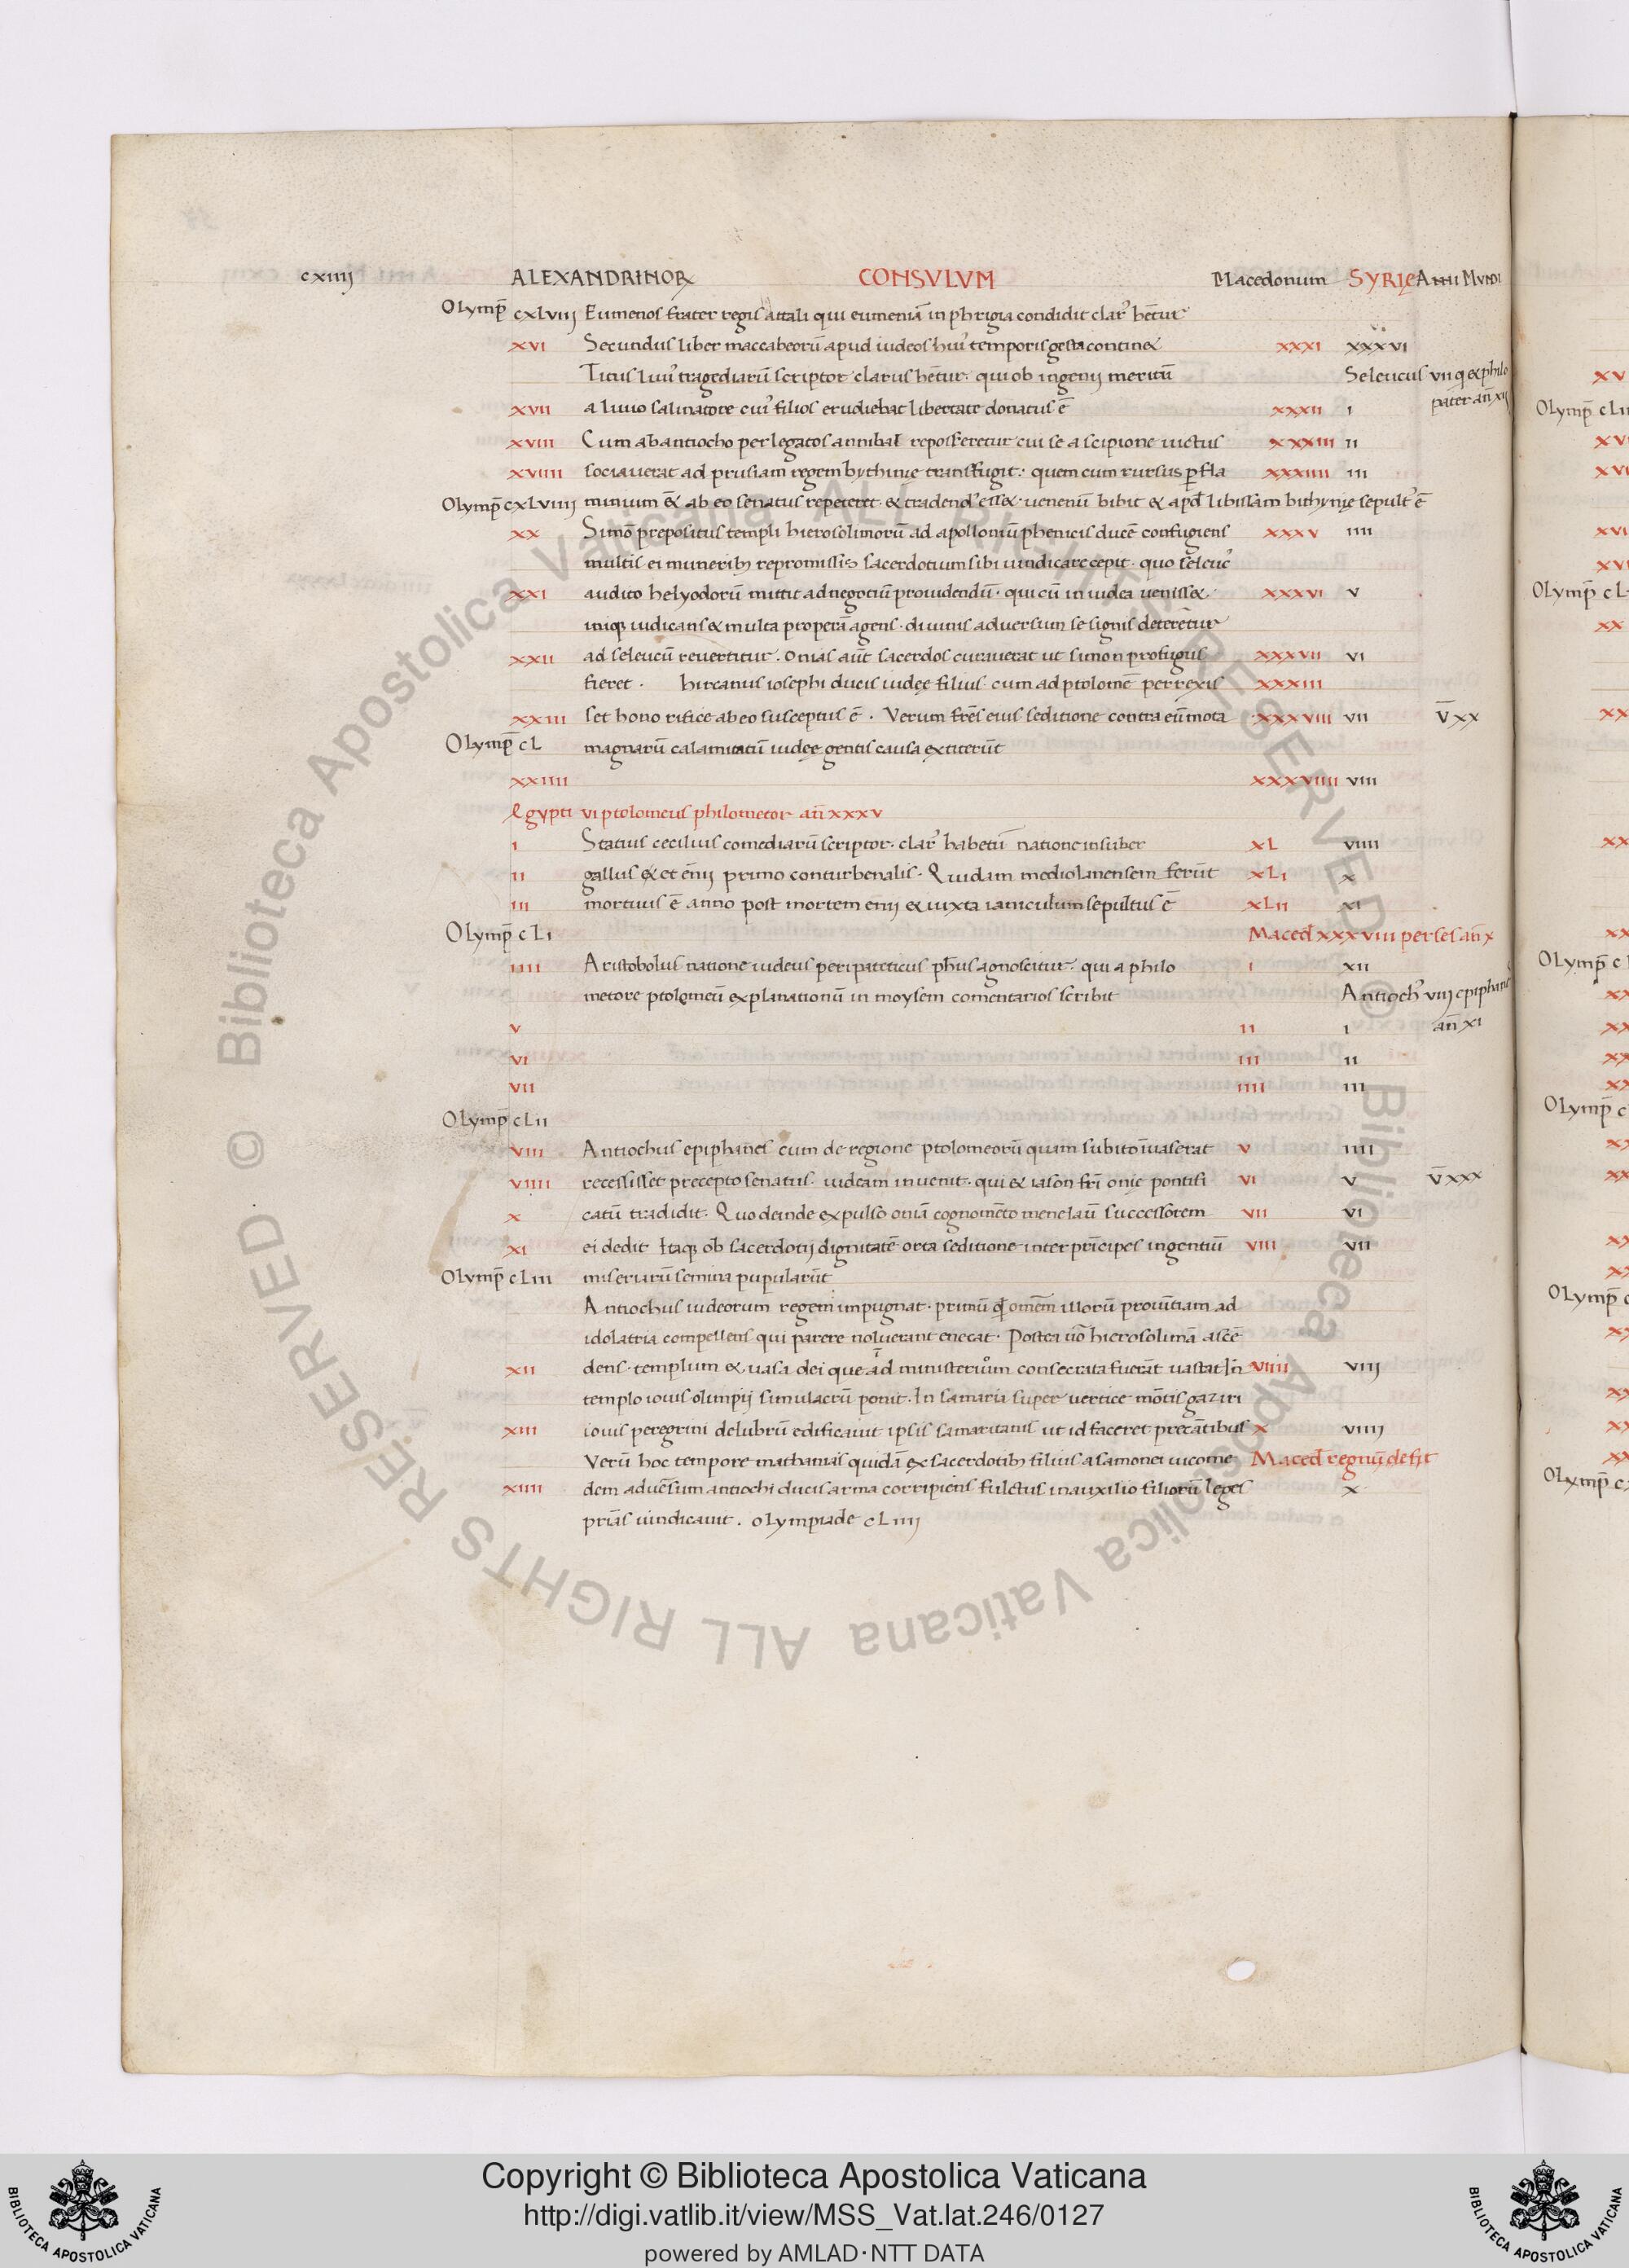 cxiiij ALEXANDRINOR CONSVLVM Macedonum SYRIĘ Anni Mundi
Olymp̄ cxlviij Eumenes frater regis attali qui eumeniā in phrigia condidit clar' hētur
xvi Secundus liber maccabeorū apud iudeos hui' temporis gesta continet xxxi xxxvi
Titus Liui' tragediarū scriptor clarus hētur. qui ob ingenij meritū Seleucus vii q et philo
xvii a liuio salinatore cui' filios erudiebat libertate donatus ē xxxii i pater an̄ xij
xviii Cum ab antiocho per legatos annibal reposceretur cui se a scipione uictus xxxiii ii
xviiii sociauerat ad prusiam regem bythinie transfugit. quem cum rursus per fla xxxiiii iii
Olymp̄ cxlviiii minium & ab eo senatus repeteret. & tradend' esset. uenenū bibit & apd libissam bithynie sepult' ē
xx Simō prepositus templi hierosolimorū ad apolloniū phenicis ducē confugiens xxxv iiii
multis ei munerib; repromissis sacerdotium sibi uindicare cepit. quo seleuc'
xxi audito helyodorū mittit ad negotiū prouidendū. qui cū in iudea uenisset xxxvi v
iniq; iudicans & multa properā agens. diuinis aduersum se signis deterētur
xxii ad seleucū reuertitur. onias aūt sacerdos curauerat ut simon profugus xxxvii vi
fieret. hircanus iosephi ducis iudeę filius cum ad ptolomē perrexis xxxiii
xxiii set honorifice ab eo susceptus ē. Verum frēs eius seditione contra eū mota xxxviii vii v̄xx
Olymp̄ cl magnarū calamitatū iudeę gentis causa extiterūt
xxiiii xxxviiii viii
Egypti vi ptolomeus philometor an̄ xxxv
i Statius cecilius comediarū scriptor. clar' habetur natione insuber xl viiii
ii gallus & et ēnij primo conturbenalis. Quidam mediolanensem ferūt xli x
iii mortuus ē anno post mortem enij & iuxta ianiculum sepultus ē xlii xi
Olymp̄ cli Maced xxxviii perses an̄ x
iiii Aristobolus natione iudeus peripateticus ph̄us agnoscitur. qui a philo i xii
metore ptolomeū explanationū in moysem comentarios scribit Antioch' viij epiphanes
v ii i an̄ xi
vi iii ii
vii iiii iii
Olymp̄ clii
viii Antiochus epiphanes cum de regione ptolomeorū quam subito īuaserat v iiii
viiii recessisset precepto senatus. iudeam inuenit. qui & iason frī onie pontifi vi v v̄xxx
x catū tradidit. Quo deinde expulso oniā cognomēto menelaū successorem vii vi
xi ei dedit Itaq; ob sacerdotij dignitatē orta seditione inter prīcipes ingentiū viii vii
Olymp̄ cliii miseriarū semina pupularūt
Antiochus iudeorum regem impugnat. primū qd omēm illorū prouītiam ad
idolatria compellens qui parere noluerant enecat. Postea uō hierosolimā ascē
xii dens. templum & uasa dei que ad ministerium consecrata fuerāt uastat In viiii viij
templo iouis olimpij simulacrū ponit. In samaria super uertice mōtis gaziri
xiii iouis peregrini delubrū edificauit ipsis samaritanis ut id faceret precātibus x viiii
Verū hoc tempore mathanias quidā ex sacerdotib; filius asamonei uicome Maced regnū defit
xiiii dem aduersum antiochi ducis arma corripiens fulctus in auxilio filiorū leges x
prīas uindicauit. olympiade cliiij
Copyright © Biblioteca Apostolica Vaticana
http://digi.vatlib.it/view/MSS_Vat.lat.246/0127
powered by AMLAD·NTT DATA
BIBLIOTECA APOSTOLICA VATICANA
BIBLIOTECA APOSTOLICA VATICANA
© Biblioteca Apostolica Vaticana ALL RIGHTS RESERVED
© Biblioteca Apostolica Vaticana ALL RIGHTS RESERVED